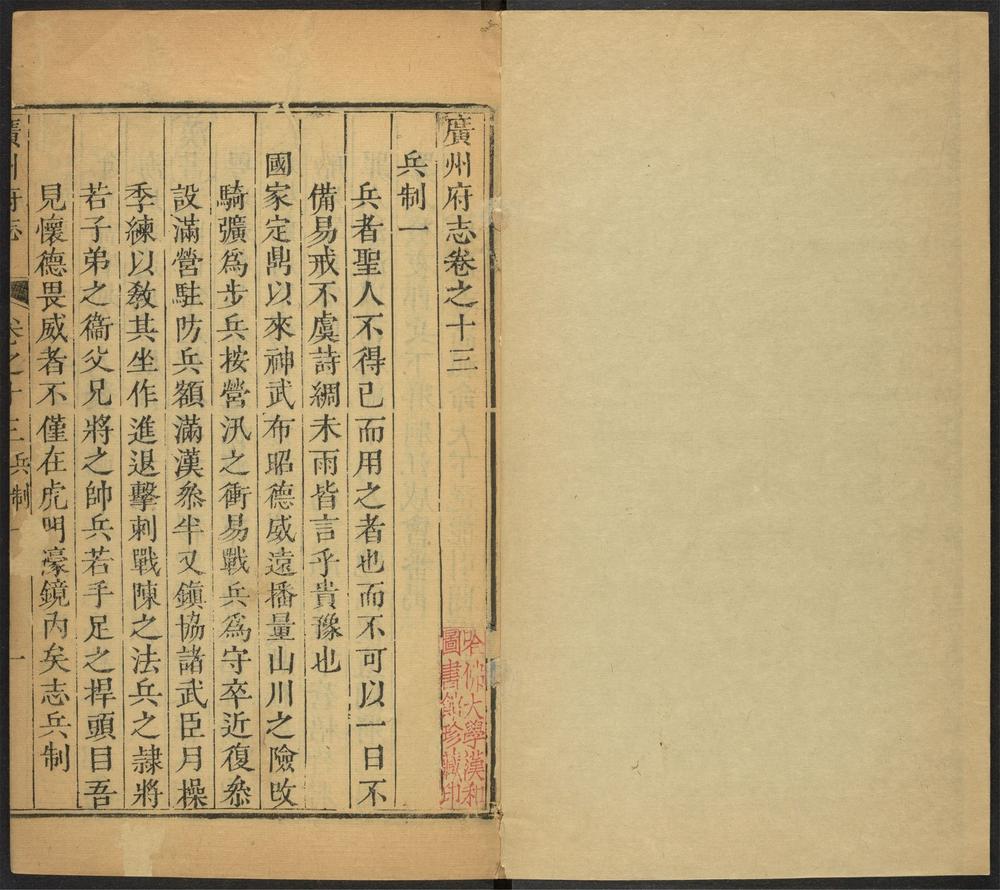 廣州府志卷之十三
兵制一
兵者聖人不得已而用之者也而不可以一日不
備易戒不虞詩綢未雨皆言乎貴豫也
國家定鼎以來神武布昭德威遠播量山川之險改
騎彍爲步兵按營汛之衝易戰兵爲守卒近復叅
設滿營駐防兵額滿漢叅半又鎮協諸武臣月操
季練以教其坐作進退擊刺戰陳之法兵之隷將
若子弟之衞父兄將之帥兵若手足之捍頭目吾
見懷德畏威者不僅在虎門濠鏡內矣志兵制
廣州府志 卷之十三 兵制一 一
哈佛大學漢和
圖書館珍藏印